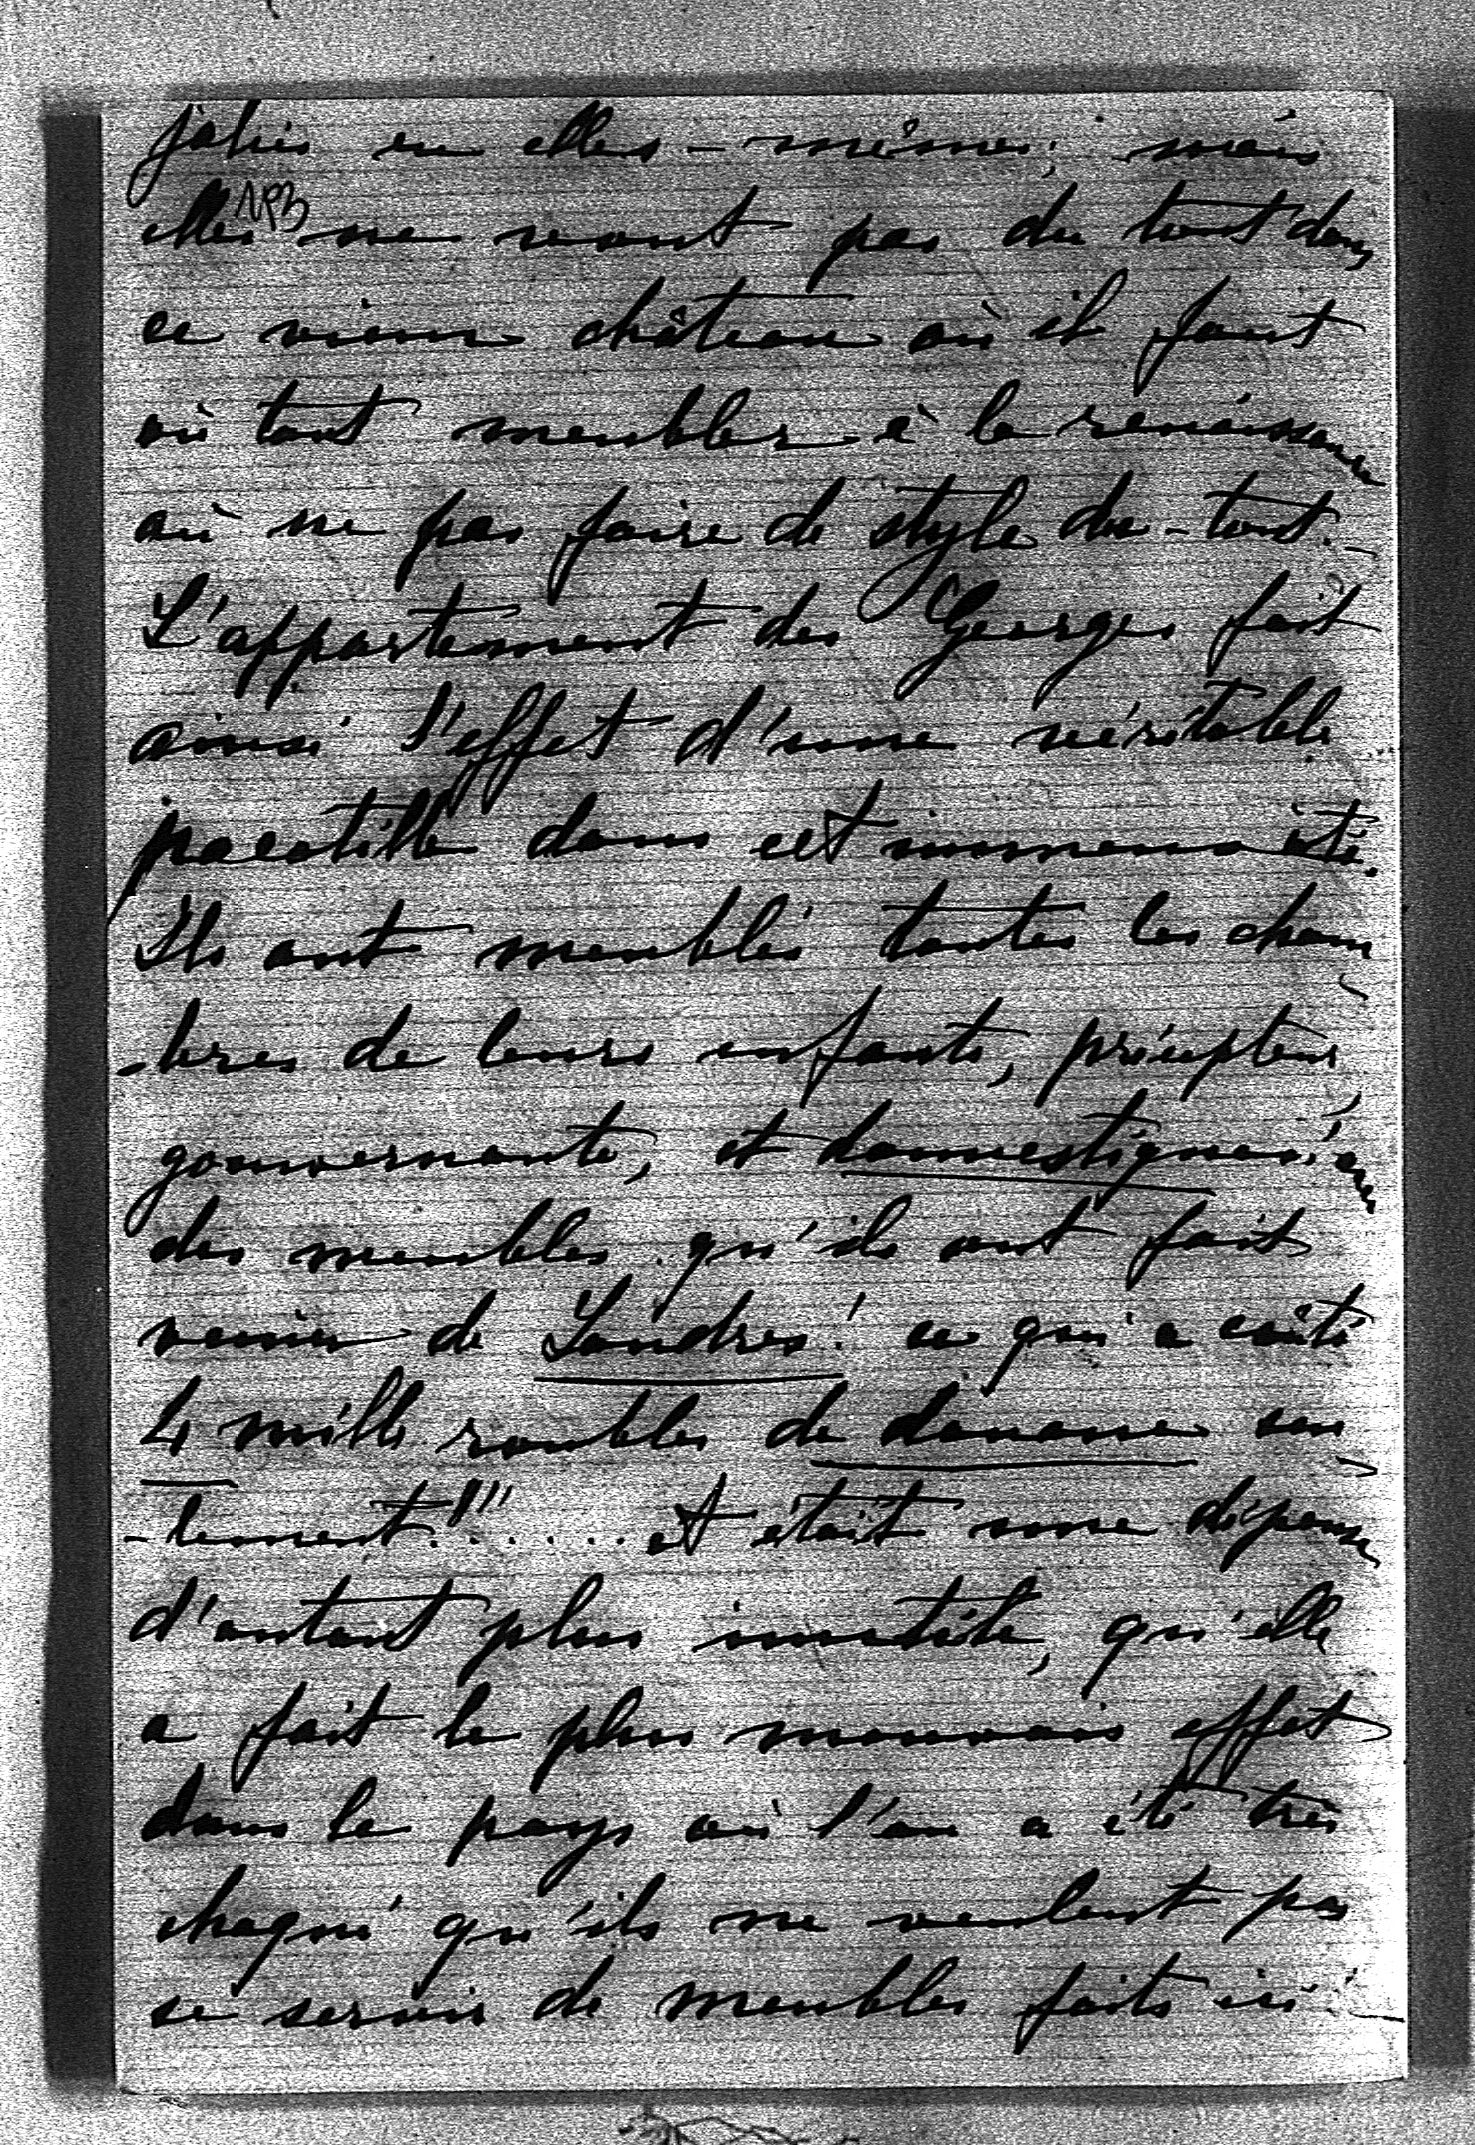 jolies en elles-mêmes; mais
elles ne vont pas du tout dans
ce vieux château où il faut
où tout meubler à la renaissance
où ne pas faire de style du-tout.
L'appartement des Georges fait
ainsi l'effet d'une véritable
pacotille dans cet immense
Ils ont meublés toutes les cham
-bres de leurs enfants, précepteur,
gouvernante, et domestiques, avec
des meubles qu'ils ont fait
venir de Londres! ce qui a coûté
4 mille roubles de douane seu
-lement!!!...... et était une dépense
d'autant plus inutile, qu'elle
a fait le plus mauvais effet
dans le pays où l'on a été très
choqué qu'ils ne veulent pas
se servir de meubles faits ici